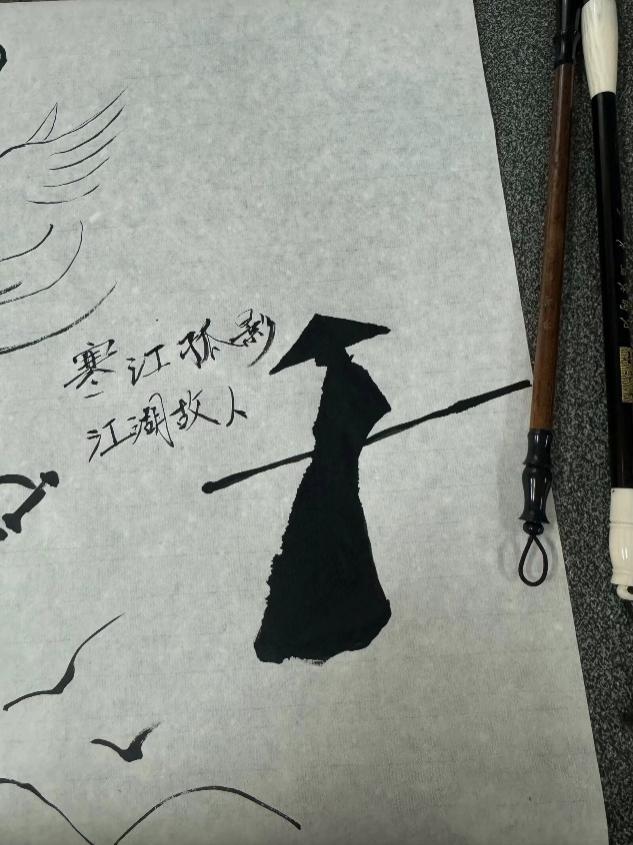 寒江孤影
江湖故人